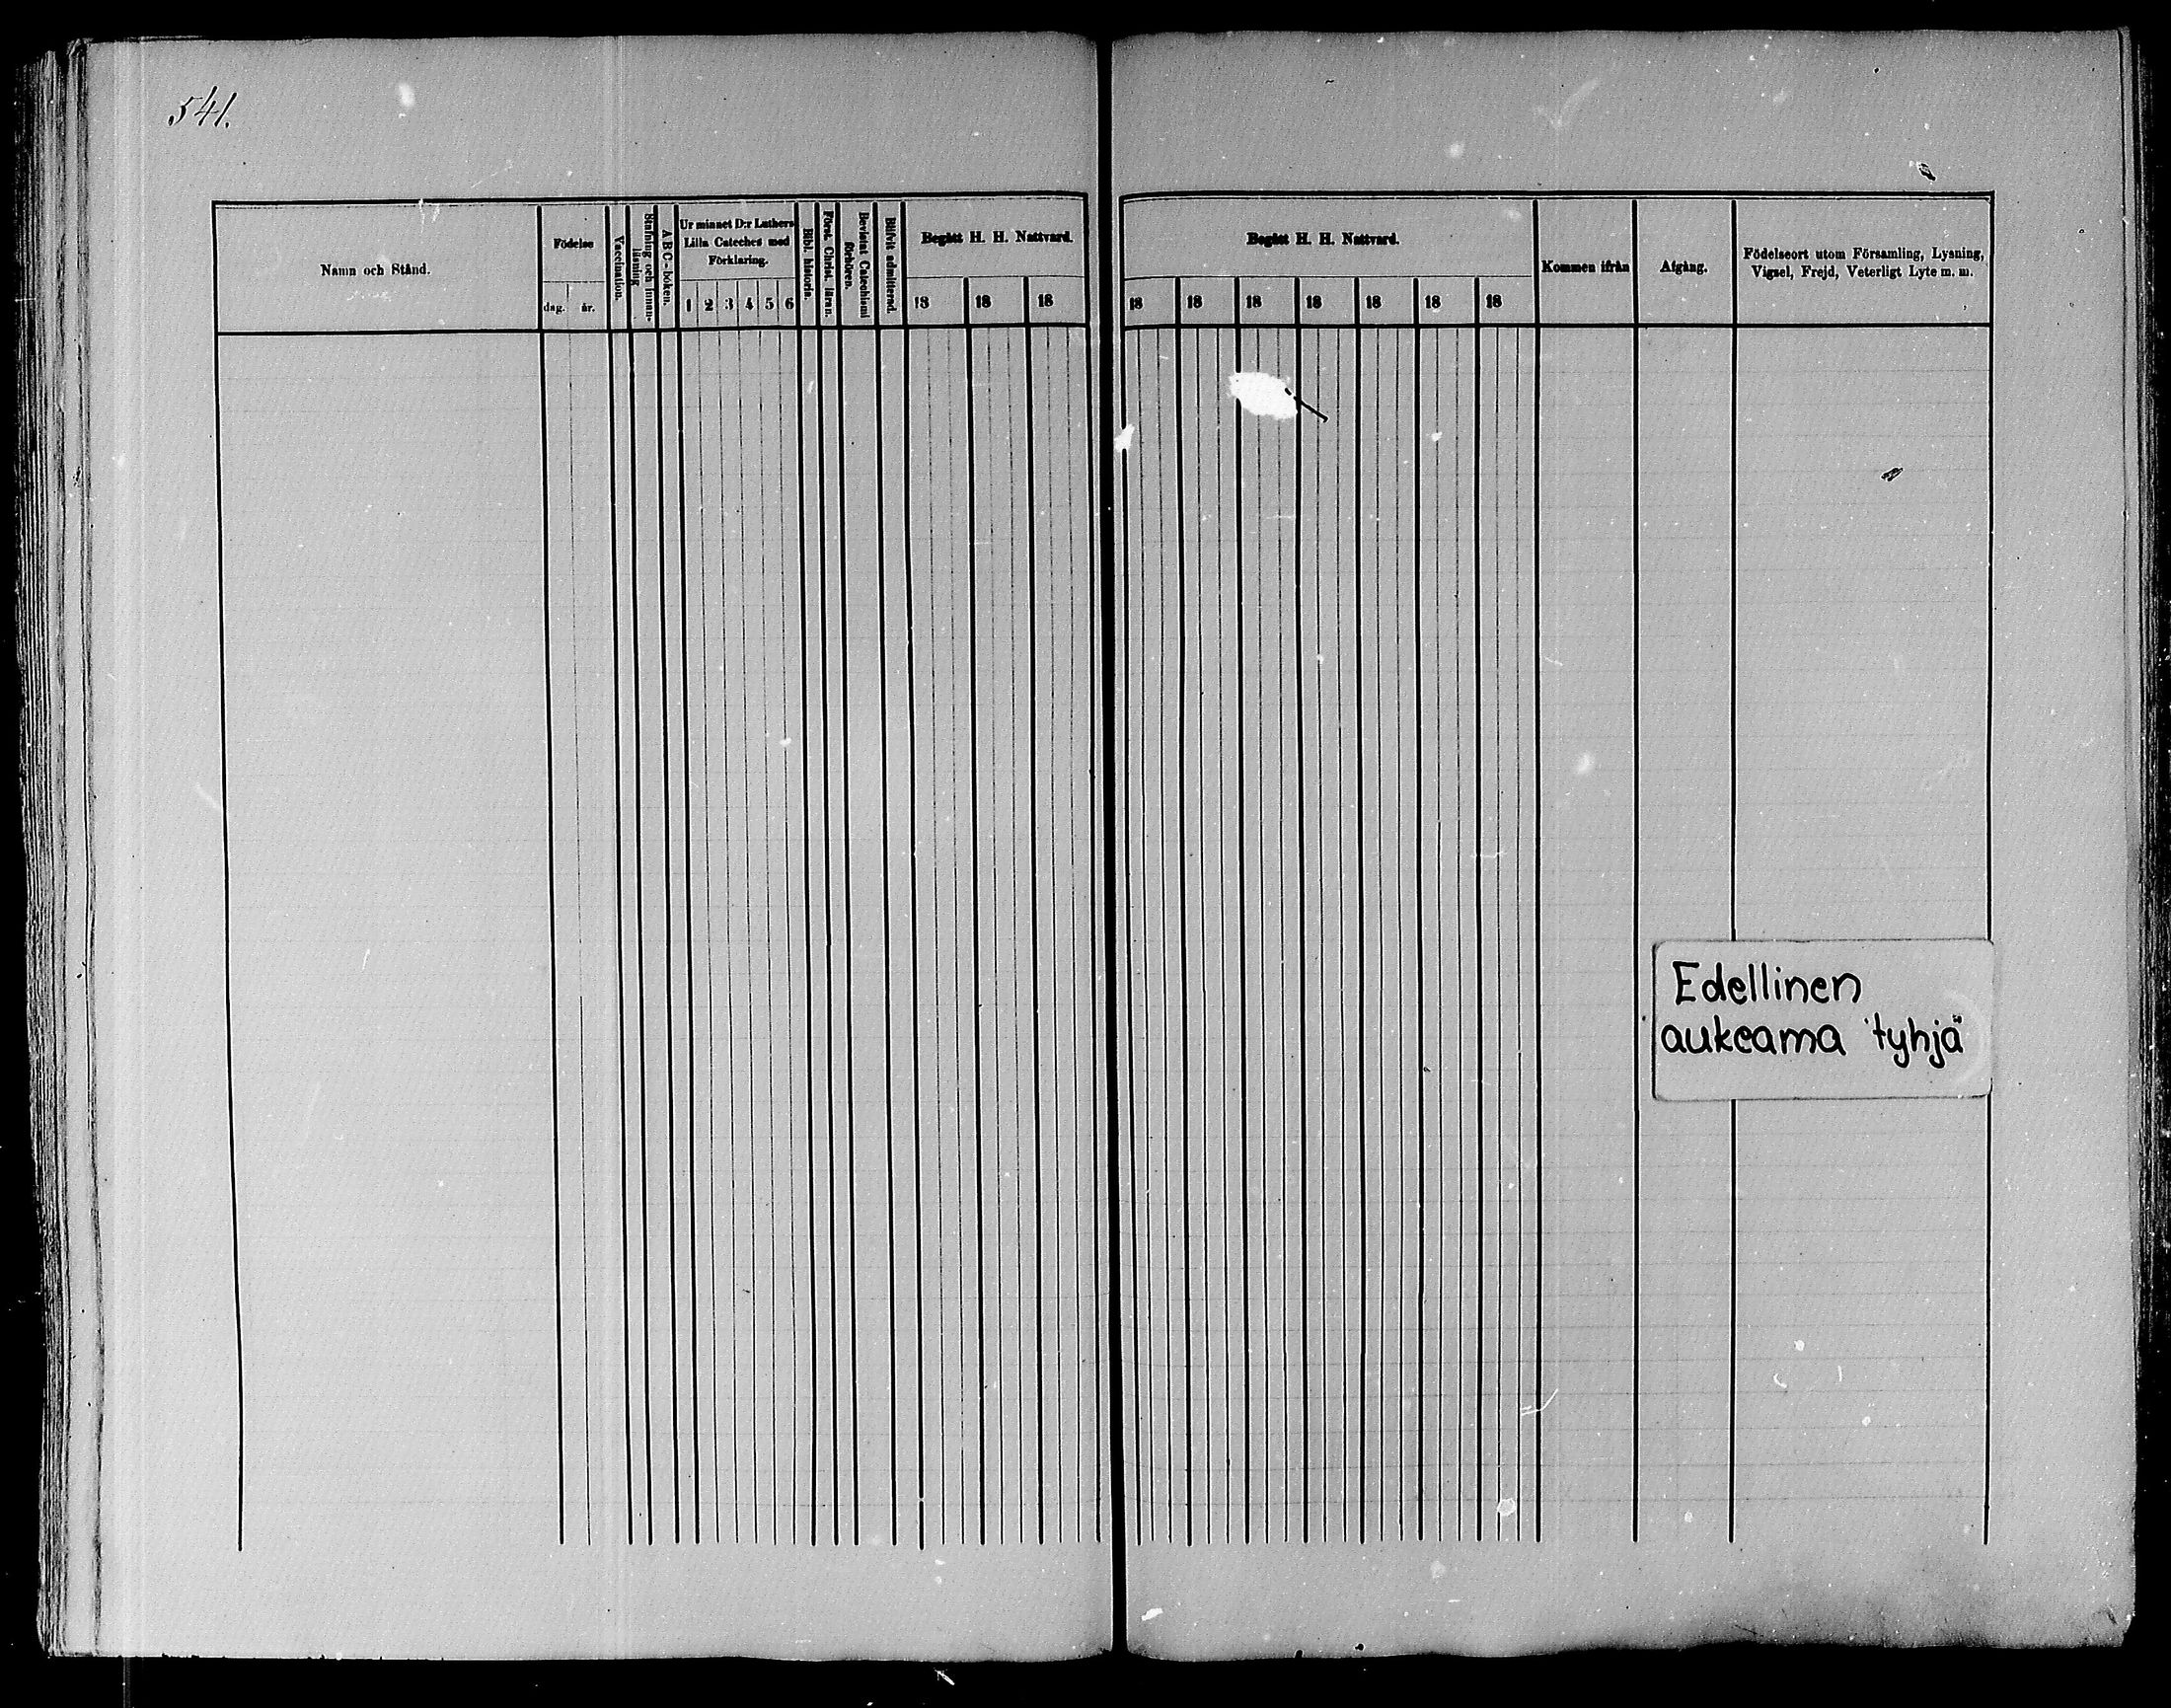 541.
Namn och Stånd.
Födelse
dag.
år.
Vaccination.
Stafning och innan-
läsning
A B C-boken.
Ur minnet D:r Luthers
Lilla Cateches med
Förklaring.
1 2 3 4 5 6
Bibl. historia.
Först. Christ. läran.
Bevistat Catechismi
förhören.
Blifvit admitterad.
Begått H. H. Nattvard.
18 18 18
Begått H. H. Nattvard.
18 18 18 18 18 18 18
Kommen ifrån
Afgång.
Födelseort utom Församling, Lysning,
Vigsel, Frejd, Veterligt Lyte m. m.
Edellinen
aukeama tyhjä